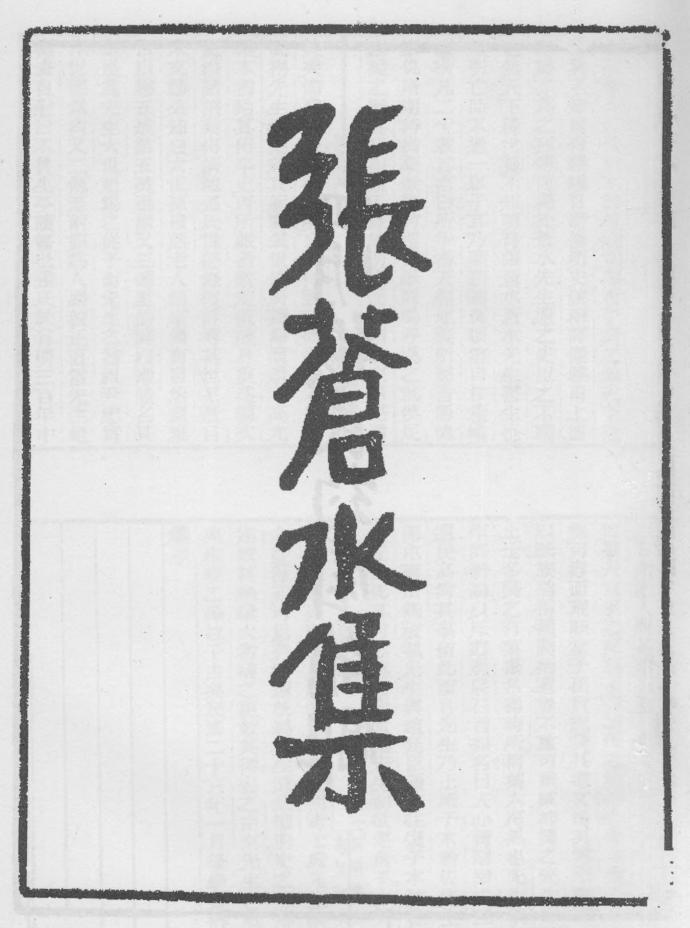 張蒼水集